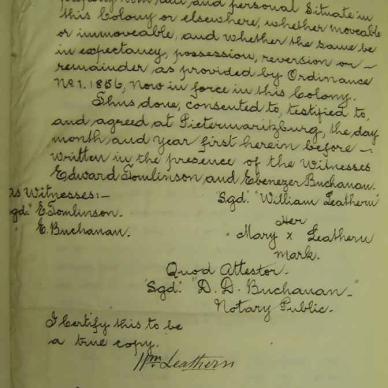 property both real and personal Situate in
this Colony or elsewhere, whether moveable
or immoveable, and whether the same be
in expectancy, possession, reversion or —
remainder as provided by Ordinance
No 1. 1856, now in force in this Colony.
Thus done, consented to, testified to,
and agreed at Pietermaritzburg, the day
month and year first herein before —
written in the presence of the Witnesses
Edward Tomlinson and Ebenezer Buchanan.
as Witnesses:— Sgd: "William Leathern"
Sgd: "E. Tomlinson. Her
E. Buchanan. "Mary x Leathern
mark.
Quod Attestor.
"Sgd: "D. D. Buchanan —
Notary Public.
I Certify this to be
a true copy.
Wm Leathern